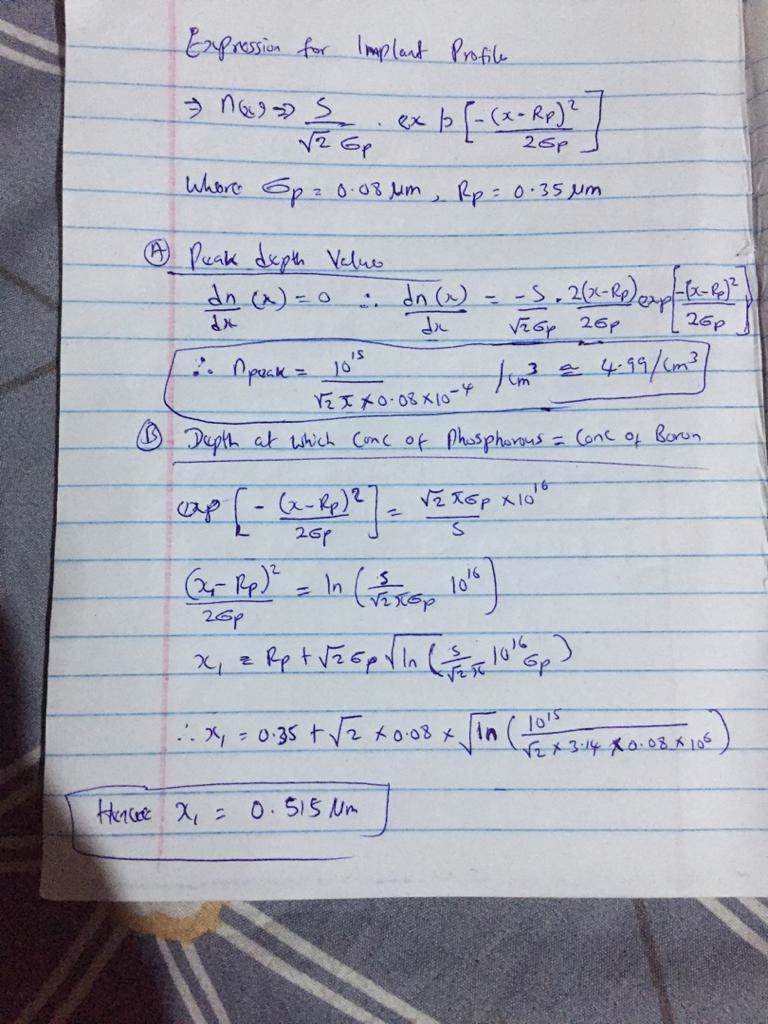 Expression for Implant Profile
⇒ n(x) ⇒ S/(√2 σp) . exp[-(x-Rp)²/2σp]
Where σp = 0.08 μm, Rp = 0.35 μm
(A) Peak depth Value
dn/dx (x) = 0 ∴ dn(x)/dx = -S/(√2σp) . 2(x-Rp)/2σp exp[-(x-Rp)²/2σp]
∴ npeak = 10^15/(√2π × 0.08×10^-4) /cm³ ≅ 4.99/cm³
(B) Depth at which Conc of Phosphorous = Conc of Boron
exp[-(x-Rp)²/2σp] = √2πσp × 10^16/S
(x₁-Rp)²/2σp = ln(S/(√2πσp) 10^16)
x₁ = Rp + √2σp √ln(S/√2π 10^16 σp)
∴ x₁ = 0.35 + √2 × 0.08 × √ln(10^15/(√2 × 3.14 × 0.08 × 10^6))
Hence x₁ = 0.515 μm